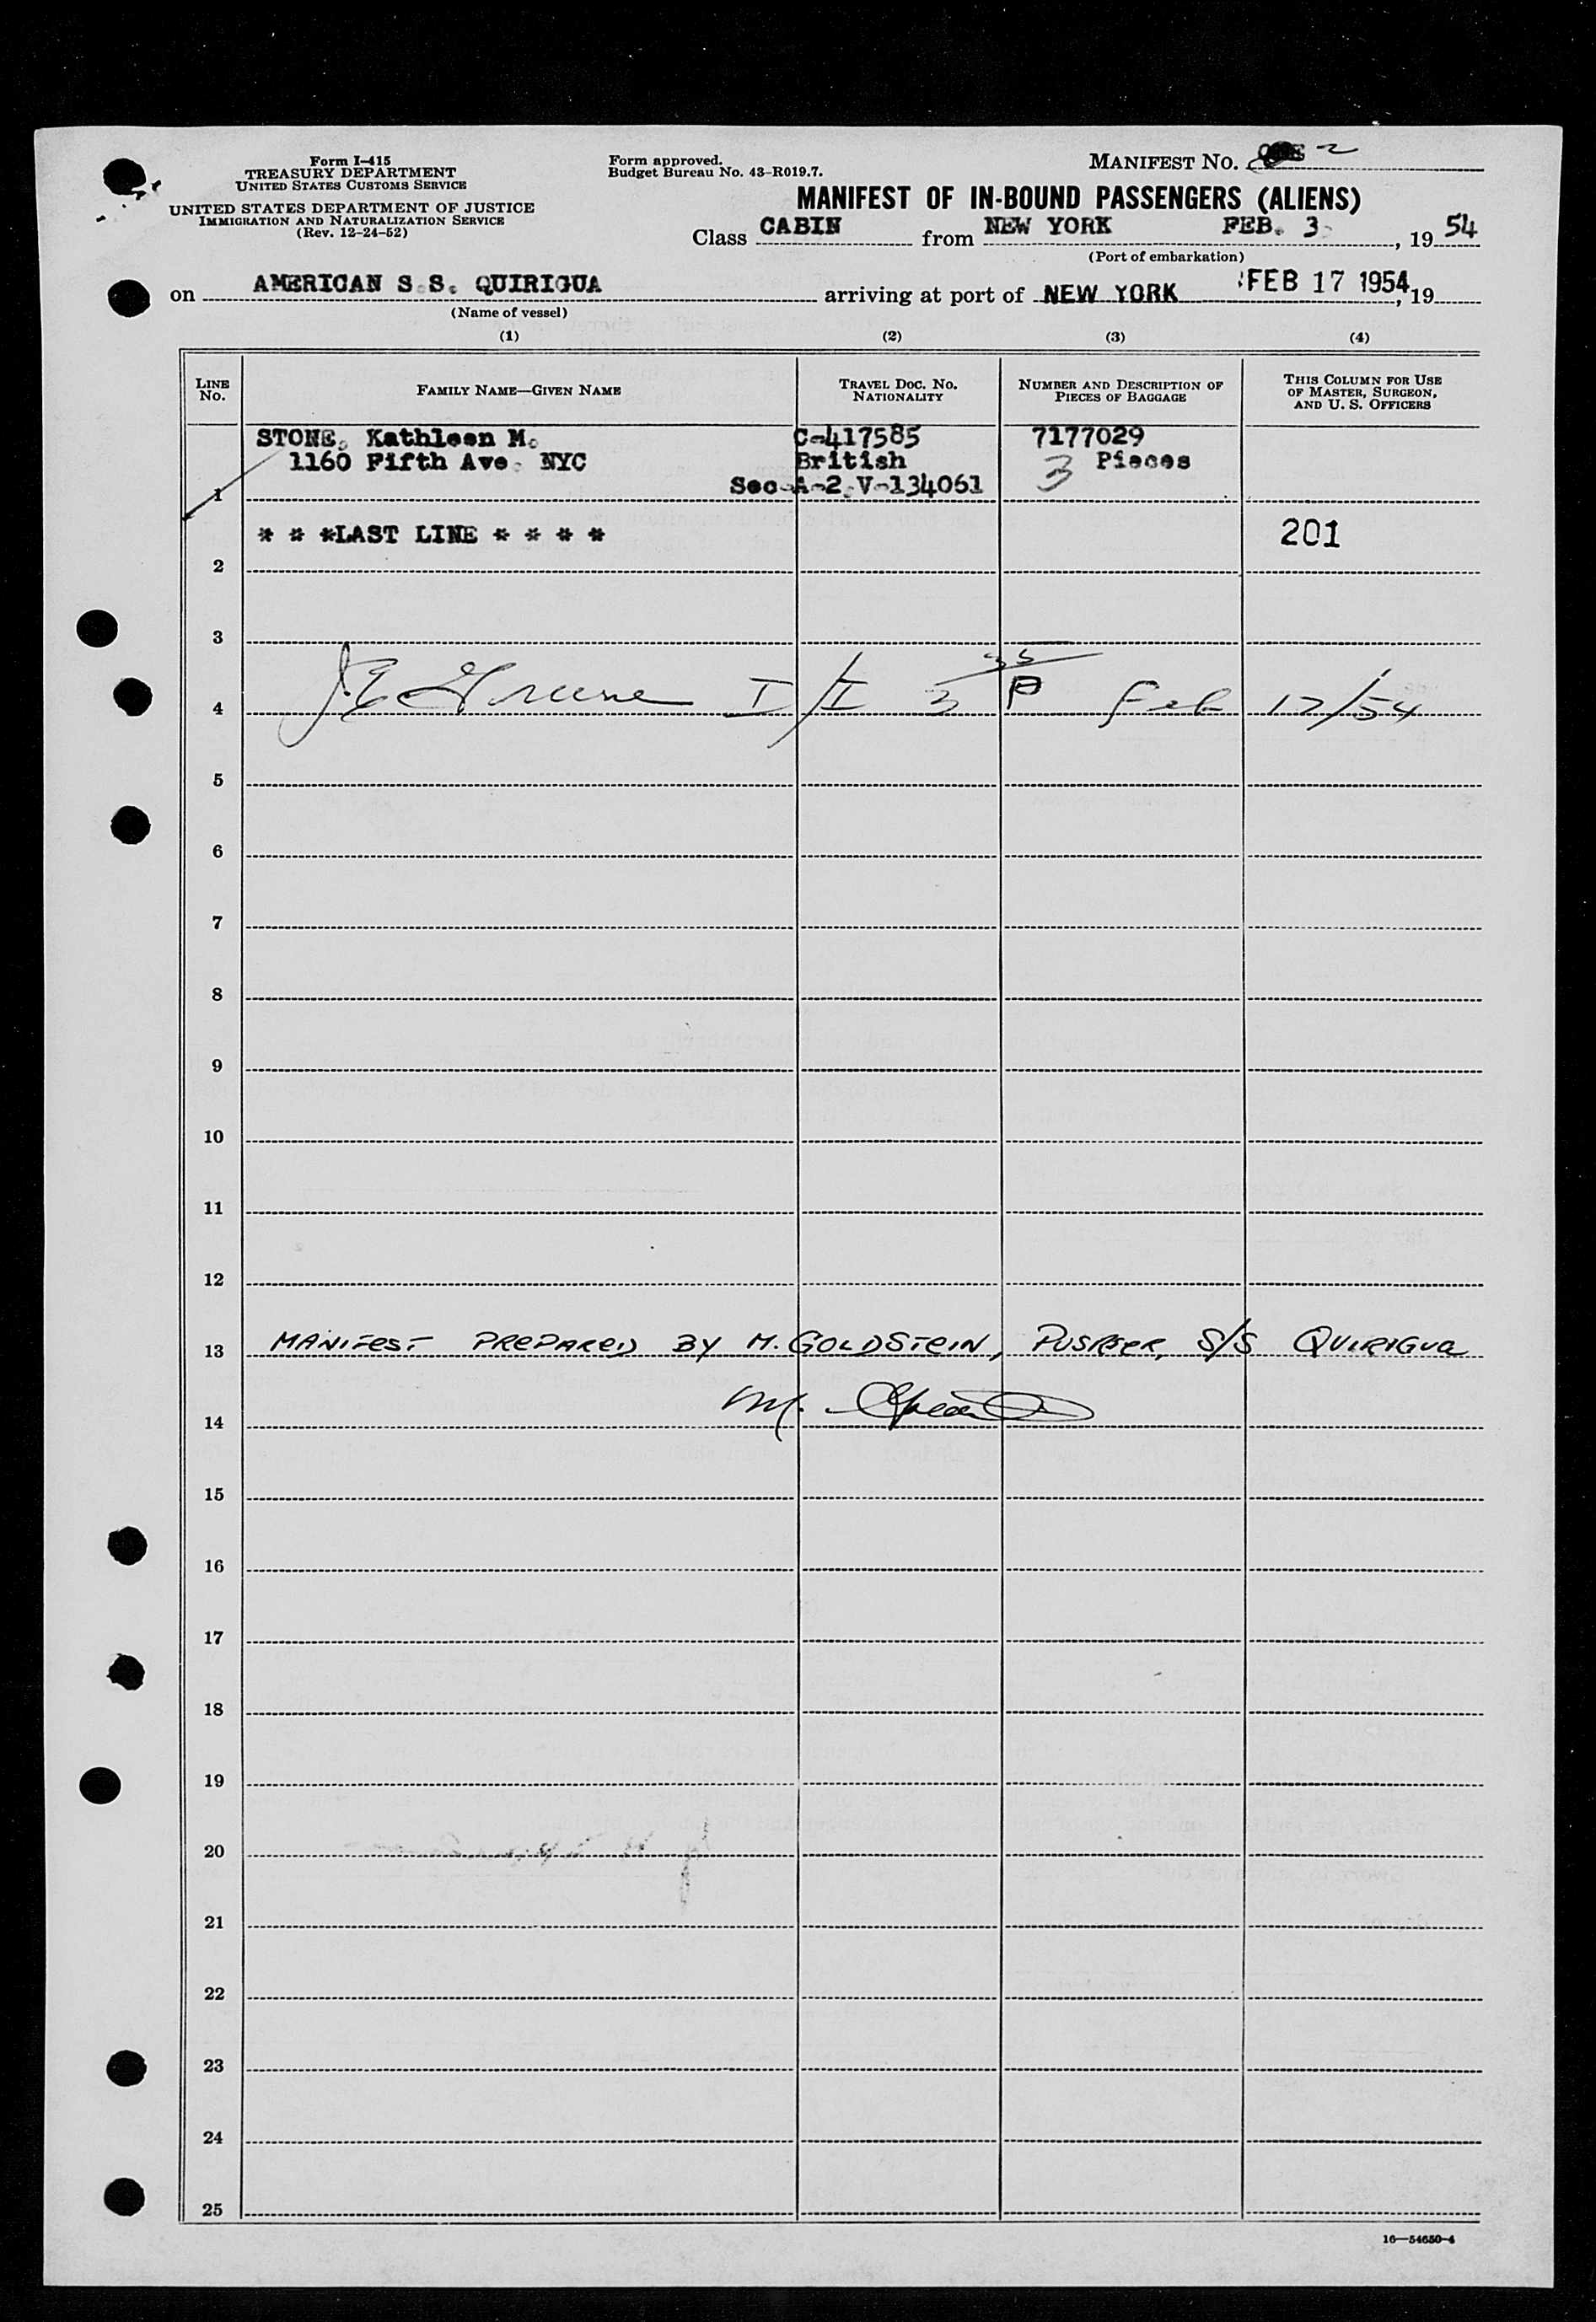 Form I-415
TREASURY DEPARTMENT
UNITED STATES CUSTOMS SERVICE
UNITED STATES DEPARTMENT OF JUSTICE
IMMIGRATION AND NATURALIZATION SERVICE
(Rev. 12-24-52)
Form approved.
Budget Bureau No. 43-R019.7.
MANIFEST NO. 2
MANIFEST OF IN-BOUND PASSENGERS (ALIENS)
Class CABIN from NEW YORK FEB. 3, 1954
(Port of embarkation)
on AMERICAN S.S. QUIRIGUA arriving at port of NEW YORK FEB 17 1954, 19
(Name of vessel)
(1) (2) (3) (4)
LINE NO.
FAMILY NAME—GIVEN NAME
TRAVEL DOC. NO. NATIONALITY
NUMBER AND DESCRIPTION OF PIECES OF BAGGAGE
THIS COLUMN FOR USE OF MASTER, SURGEON, AND U. S. OFFICERS
STONE, Kathleen M. C-417585 7177029
1160 Fifth Ave. NYC British 3 Pieces
1 Sec-A-2.V-134061
* * *LAST LINE * * * * 201
2
3
4 I/I 3 35 P Feb 17/54
5
6
7
8
9
10
11
12
13 MANIFEST PREPARED BY M. GOLDSTEIN, PURSER, S/S QUIRIGUA
14 M.
15
16
17
18
19
20
21
22
23
24
25
16—54650-4